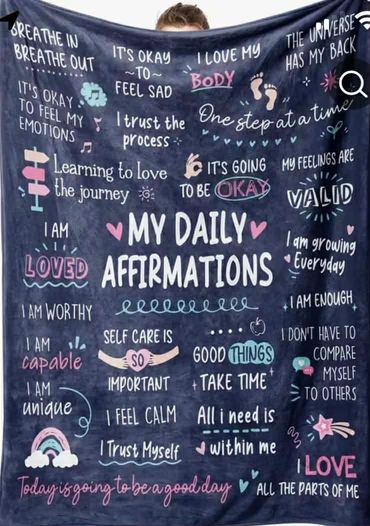 BREATHE IN
BREATHE OUT
IT'S OKAY
TO
FEEL SAD
I LOVE MY
BODY
THE UNIVERSE
HAS MY BACK
IT'S OKAY
TO FEEL MY
EMOTIONS
I trust the
process
One step at a time
Learning to love
the journey
IT'S GOING
TO BE OKAY
MY FEELINGS ARE
VALID
I AM
LOVED
MY DAILY
AFFIRMATIONS
I am growing
Everyday
I AM WORTHY
I AM ENOUGH
I AM
capable
SELF CARE IS
SO
IMPORTANT
GOOD THINGS
TAKE TIME
I DON'T HAVE TO
COMPARE
MYSELF
TO OTHERS
I AM
unique
I FEEL CALM
All i need is
within me
I Trust Myself
I LOVE
ALL THE PARTS OF ME
Today is going to be a good day